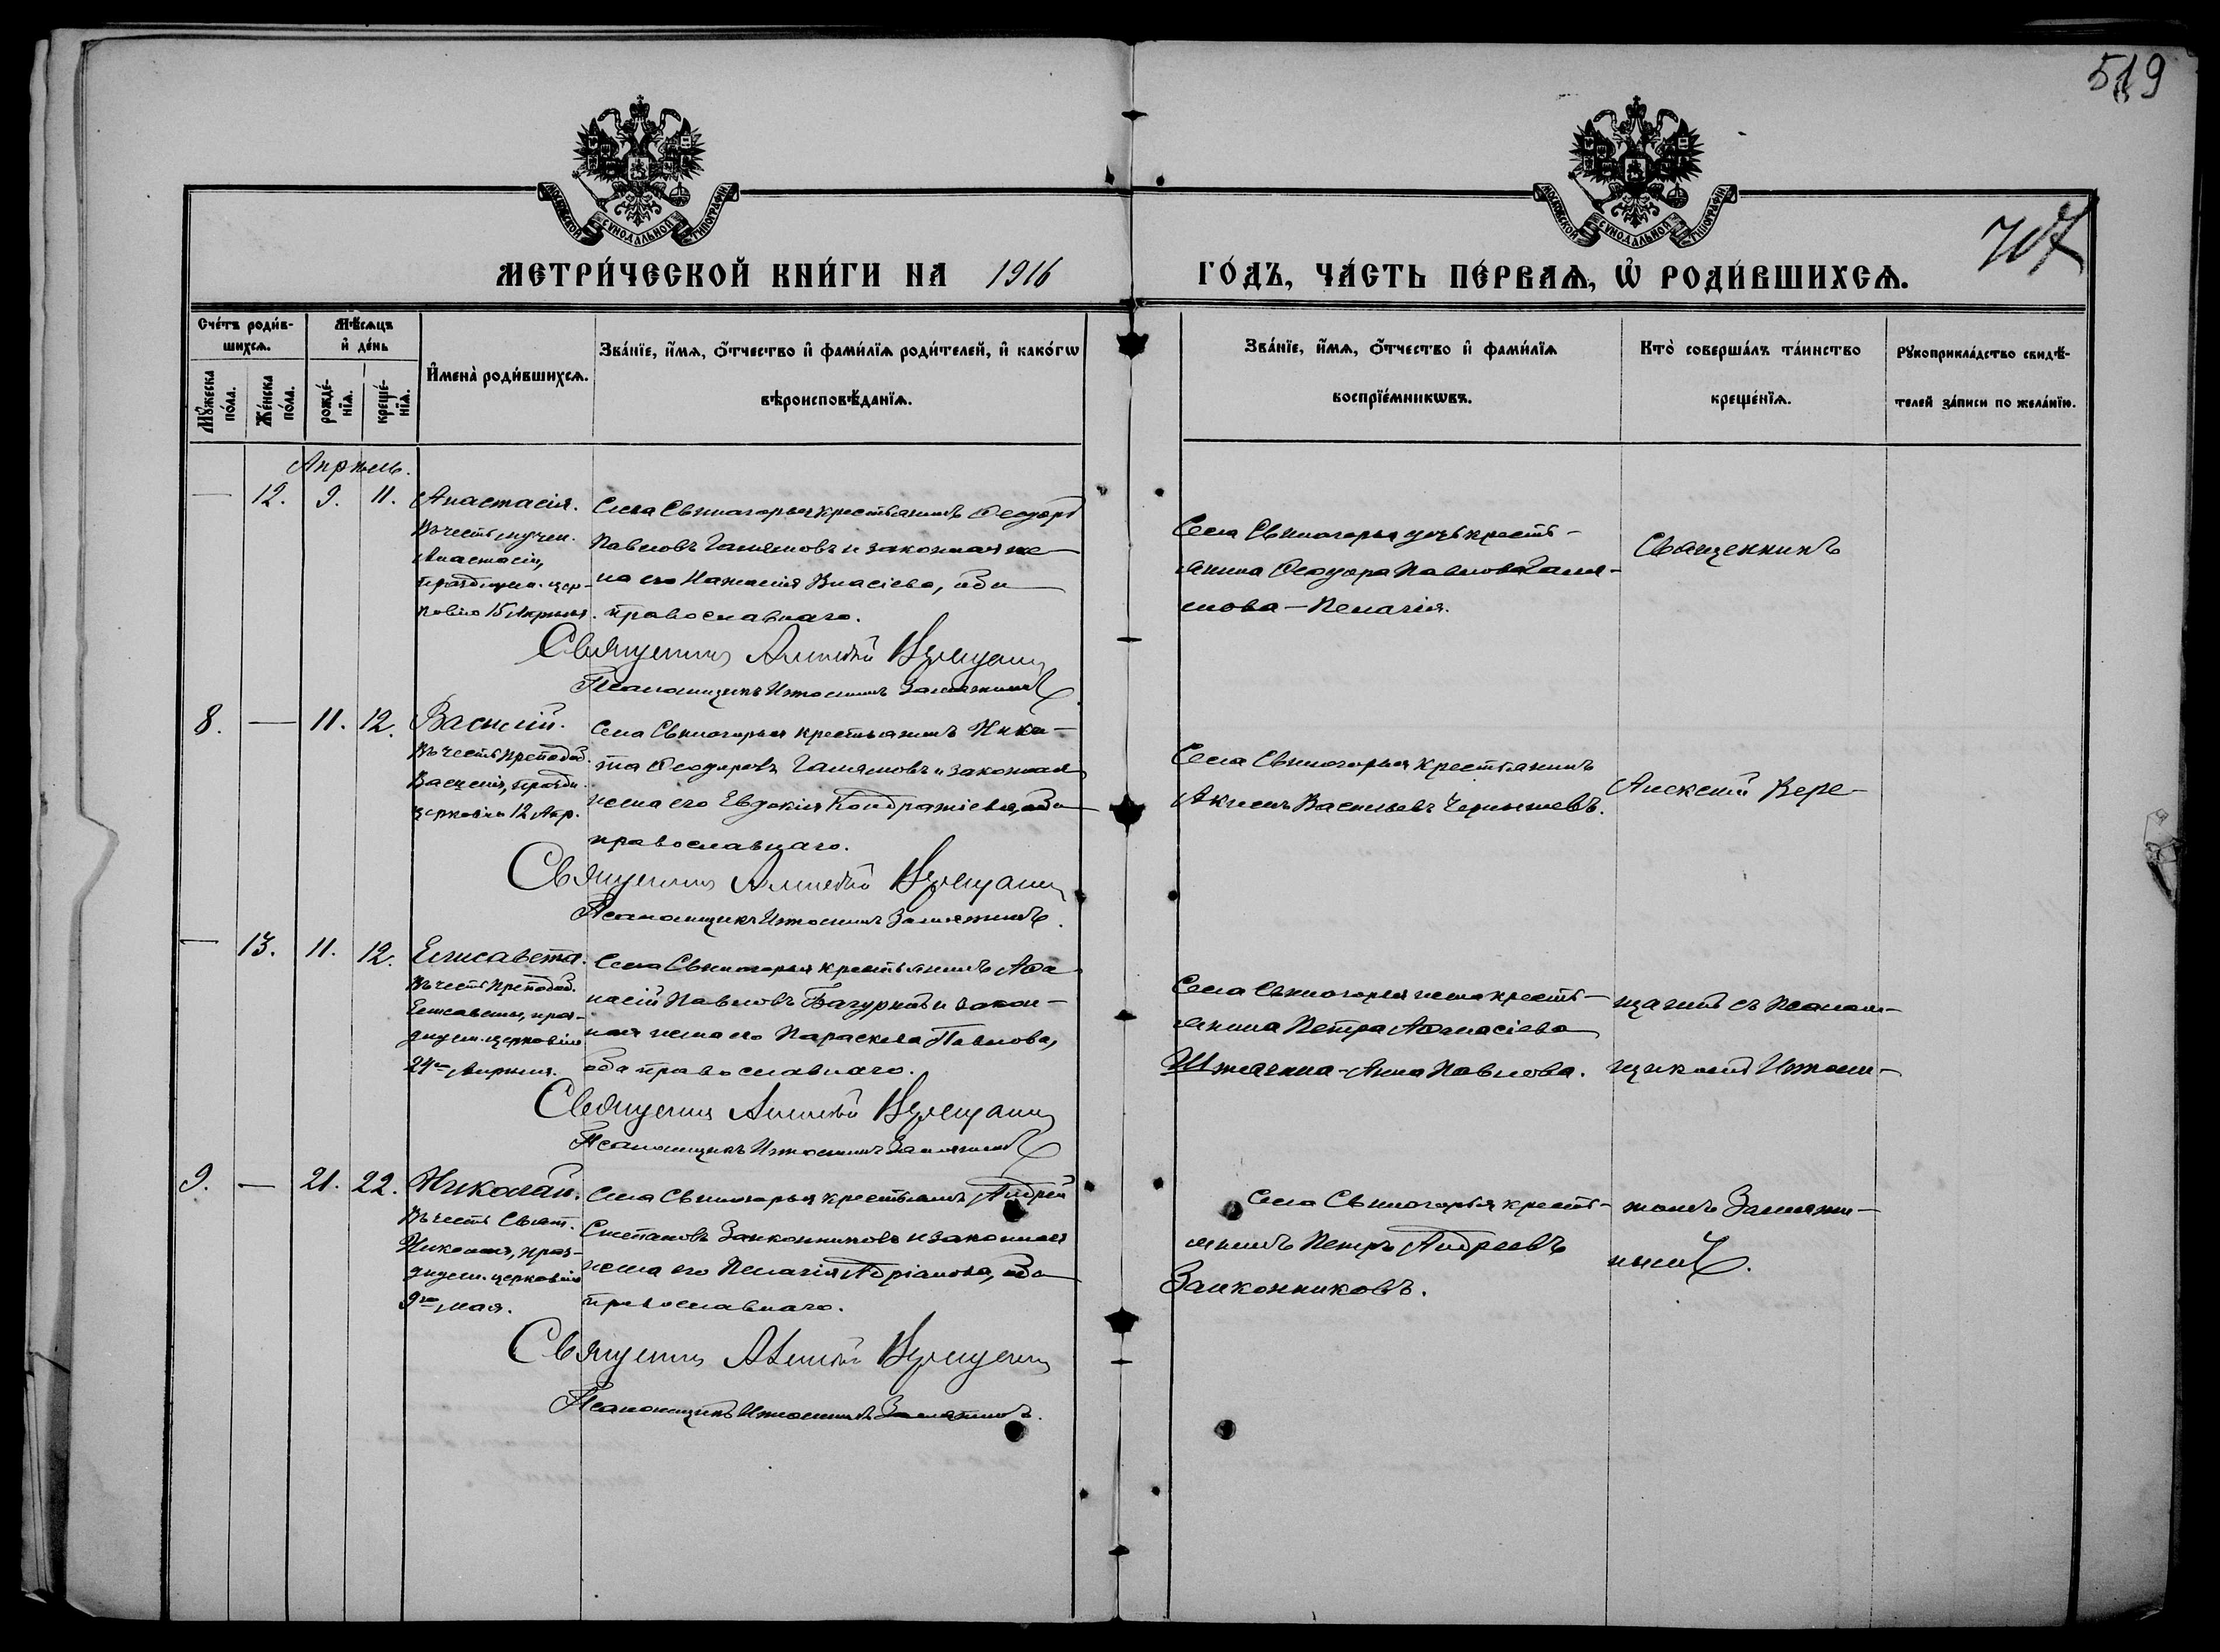 519
МОСКОВСКОЙ СУНОДАЛЬНОЙ ТИПОГРАФІИ
МОСКОВСКОЙ СУНОДАЛЬНОЙ ТИПОГРАФІИ
707
МЕТРИ́ЧЕСКОЙ КНИ́ГИ НА 1916
ГО́ДЪ, ЧА́СТЬ ПЕ́РВАѦ, Ѿ РОДИ́ВШИХСѦ.
Сче́тъ роди́в-
шихсѧ.
Мѣ́сѧцъ
и҆ де́нь
Мꙋ́жеска
по́ла.
Же́нска
по́ла.
рожде́-
нїѧ.
креще́-
нїѧ.
И҆мена̀ роди́вшихсѧ.
Зва́нїе, и҆́мѧ, ѻ҆́тчество и҆ фами́лїѧ роди́телей, и҆ како́гѡ
вѣроисповѣ́данїѧ.
Зва́нїе, и҆́мѧ, ѻ҆́тчество и҆ фами́лїѧ
воспрїе́мникѡвъ.
Кто̀ соверша́лъ та́инство
креще́нїѧ.
Рꙋкоприкла́дство свидѣ́-
телей за́писи по жела́нїю.
Апрѣль.
— 12. 9. 11. Анастасія.
Въ честь мучен.
Анастасіи,
празднуем. цер-
ковію 15 Апрѣля.
Села Свиногорья крестьянинъ Ѳеодоръ
Павловъ Галямовъ и законная же-
на его Наталія Власіева, оба
православнаго.
Священникъ Алексѣй
Псаломщикъ Измаилъ Замятинъ
Села Свиногорья дочь кресть-
янина Ѳеодора Павлова Галя-
мова — Пелагія.
Священникъ
8. — 11. 12. Василій.
Въ честь Преподоб.
Василія, праздн.
церковію 12 Апр.
Села Свиногорья крестьянинъ Ники-
та Ѳеодоровъ Галямовъ и законная
жена его Евдокія Кондратіева, оба
православнаго.
Священникъ Алексѣй
Псаломщикъ Измаилъ Замятинъ.
Села Свиногорья крестьянинъ
Василіевъ Чернышевъ.
Алексѣй Вере-
— 13. 11. 12. Елисавета.
Въ честь Преподоб.
Елисаветы, праз-
днуем. церковію
24го Апрѣля.
Села Свиногорья крестьянинъ Аѳа-
насій Павловъ Багуркинъ и закон-
ная жена его Параскева Павлова,
оба православнаго.
Священникъ Алексѣй
Псаломщикъ Измаилъ Замятинъ
Села Свиногорья жена кресть-
янина Петра Аѳанасіева
Анна Павлова.
щагинъ съ Псалом-
щикомъ Измаи-
9. — 21. 22. Николай.
Въ честь Святит.
Николая, праз-
днуем. церковію
9го Мая.
Села Свиногорья крестьянинъ Андрей
Степановъ Заиконниковъ и законная
жена его Пелагія Адріанова, оба
православнаго.
Священникъ Алексѣй
Псаломщикъ Измаилъ Замятинъ.
Села Свиногорья кресть-
янинъ Петръ Андреевъ
Заиконниковъ.
ломъ Замяти-
нымъ.